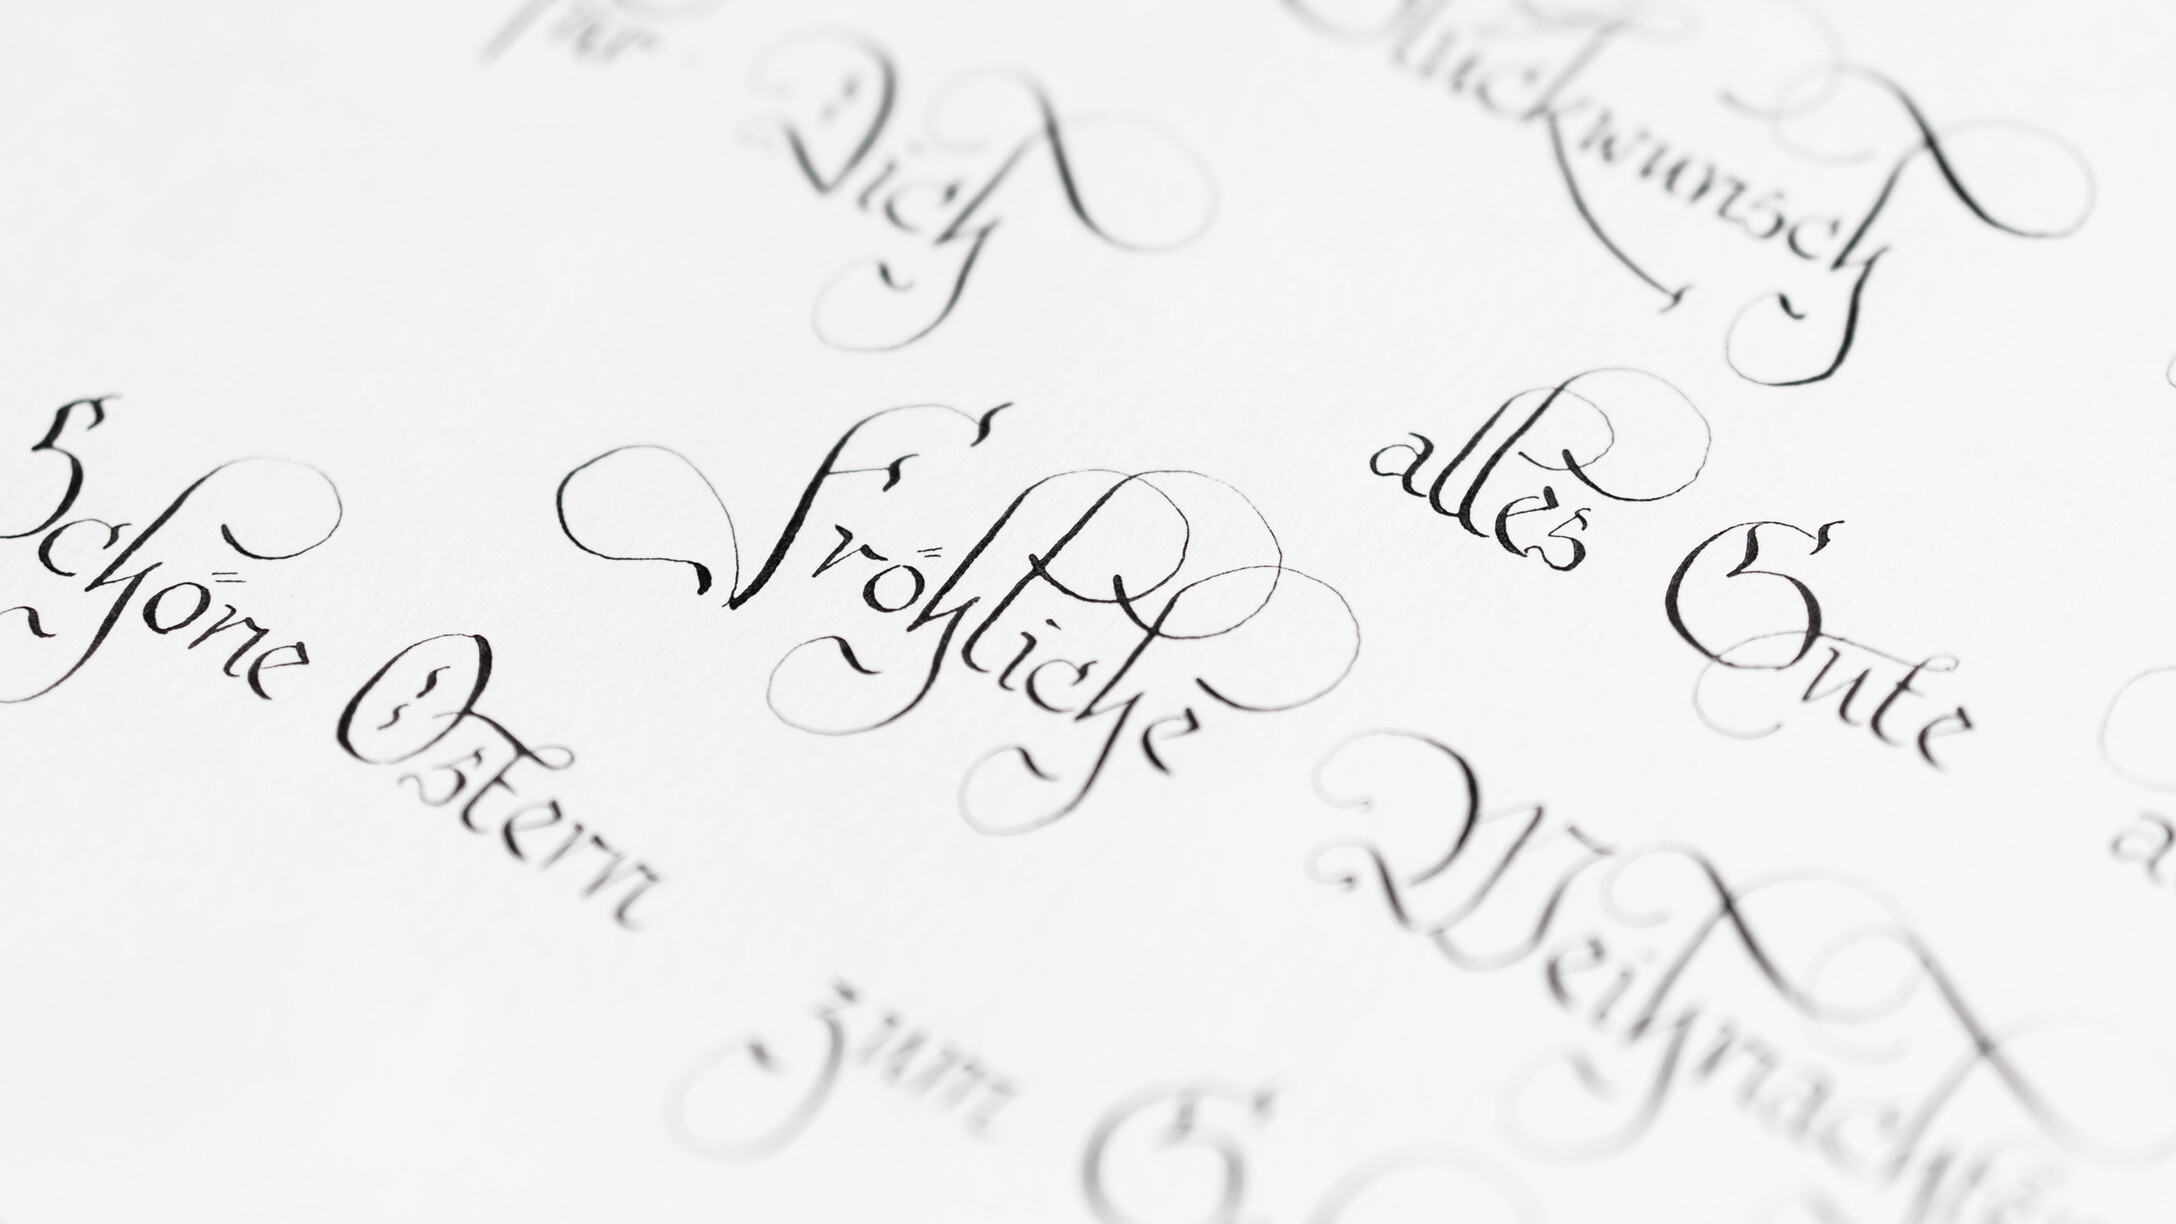 für
Dich
Glückwunsch
Schöne Ostern
Fröhliche Weihnachten
alles Gute
zum